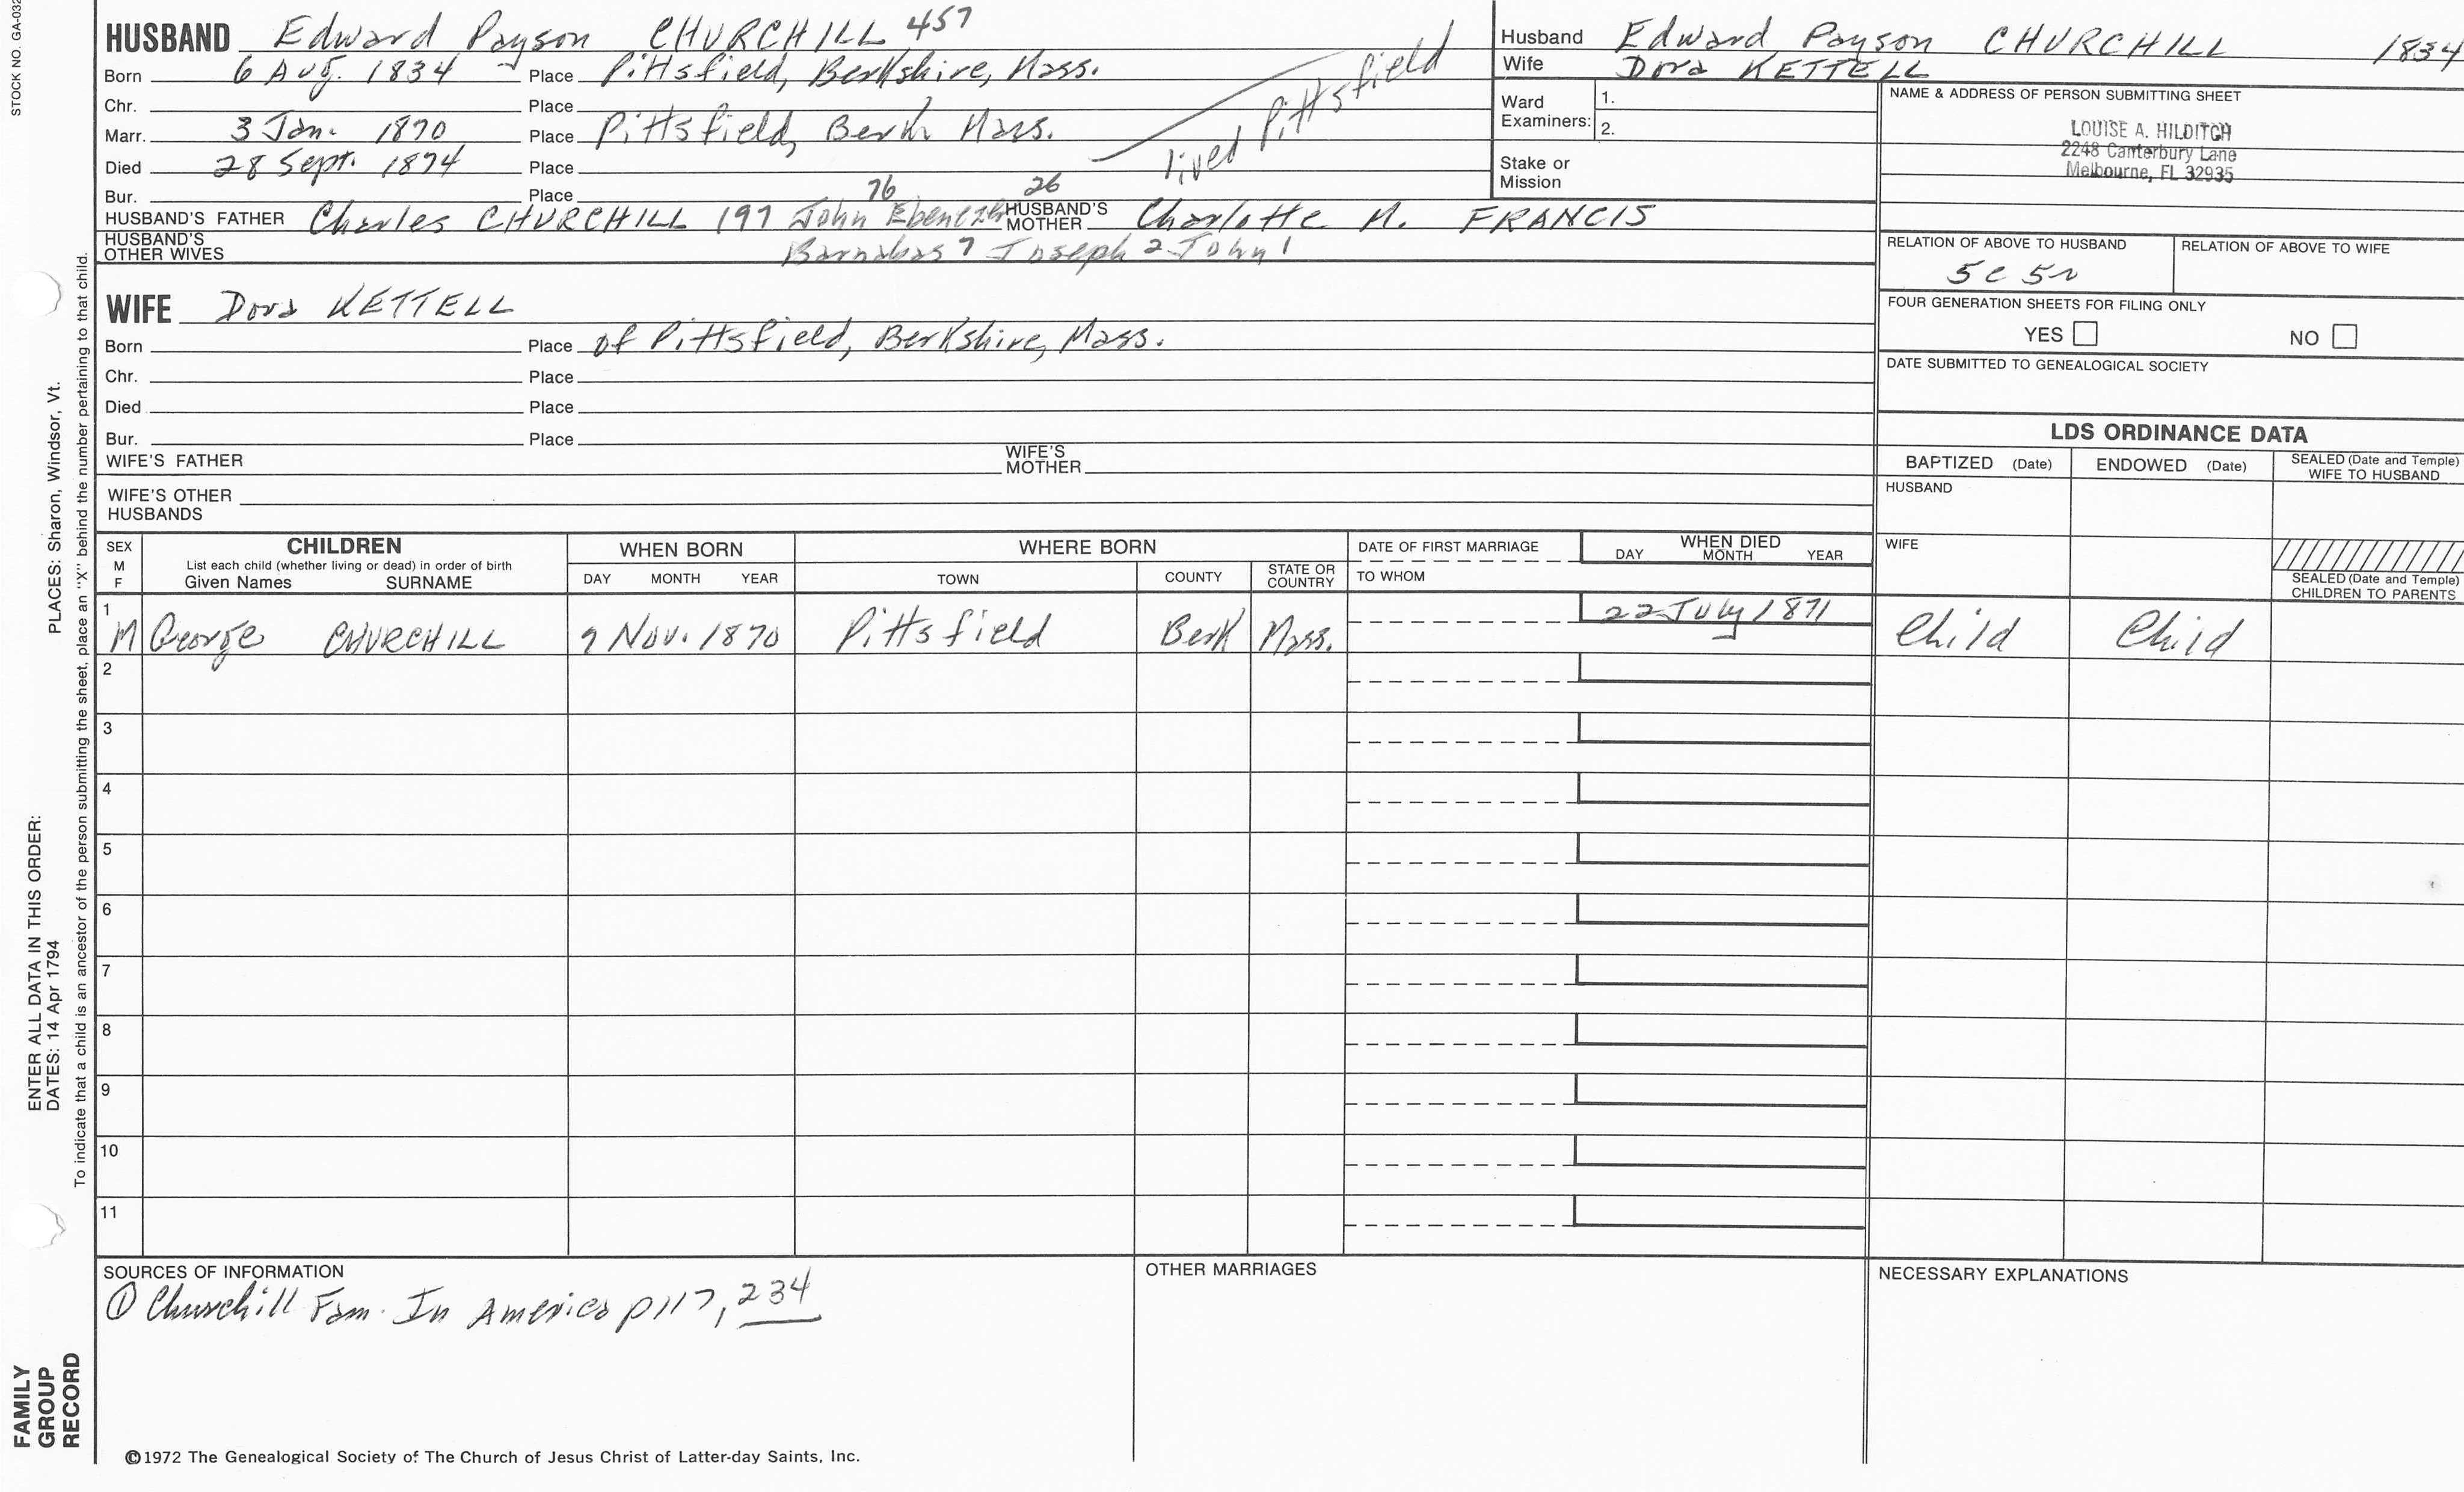 STOCK NO. GA-032
HUSBAND Edward Payson CHURCHILL 457
Born 6 Aug. 1834 Place Pittsfield, Berkshire, Mass.
Chr. Place
Marr. 3 Jan. 1870 Place Pittsfield, Berk Mass.
lived Pittsfield
Died 28 Sept. 1874 Place
Bur. Place
76 26
HUSBAND'S FATHER Charles CHURCHILL 197 John Ebenezer HUSBAND'S MOTHER Charlotte M. FRANCIS
HUSBAND'S OTHER WIVES Barnabas 7 Joseph 2 John 1
WIFE Dora KETTELL
Born Place of Pittsfield, Berkshire, Mass.
Chr. Place
Died Place
Bur. Place
WIFE'S FATHER WIFE'S MOTHER
WIFE'S OTHER HUSBANDS
Husband Edward Payson CHURCHILL 1834
Wife Dora KETTELL
Ward Examiners: 1.
2.
Stake or Mission
NAME & ADDRESS OF PERSON SUBMITTING SHEET
LOUISE A. HILDITCH
2248 Canterbury Lane
Melbourne, FL 32935
RELATION OF ABOVE TO HUSBAND RELATION OF ABOVE TO WIFE
5c 5r
FOUR GENERATION SHEETS FOR FILING ONLY
YES NO
DATE SUBMITTED TO GENEALOGICAL SOCIETY
LDS ORDINANCE DATA
BAPTIZED (Date) ENDOWED (Date) SEALED (Date and Temple) WIFE TO HUSBAND
HUSBAND
WIFE
SEALED (Date and Temple) CHILDREN TO PARENTS
SEX M F CHILDREN WHEN BORN WHERE BORN DATE OF FIRST MARRIAGE WHEN DIED
List each child (whether living or dead) in order of birth
Given Names SURNAME DAY MONTH YEAR TOWN COUNTY STATE OR COUNTRY TO WHOM DAY MONTH YEAR
1 M George CHURCHILL 9 Nov. 1870 Pittsfield Berk Mass. 22 July 1871 Child Child
2
3
4
5
6
7
8
9
10
11
SOURCES OF INFORMATION OTHER MARRIAGES NECESSARY EXPLANATIONS
① Churchill Fam. In America p 117, 234
©1972 The Genealogical Society of The Church of Jesus Christ of Latter-day Saints, Inc.
FAMILY
GROUP
RECORD
ENTER ALL DATA IN THIS ORDER:
DATES: 14 Apr 1794 PLACES: Sharon, Windsor, Vt.
To indicate that a child is an ancestor of the person submitting the sheet, place an "X" behind the number pertaining to that child.